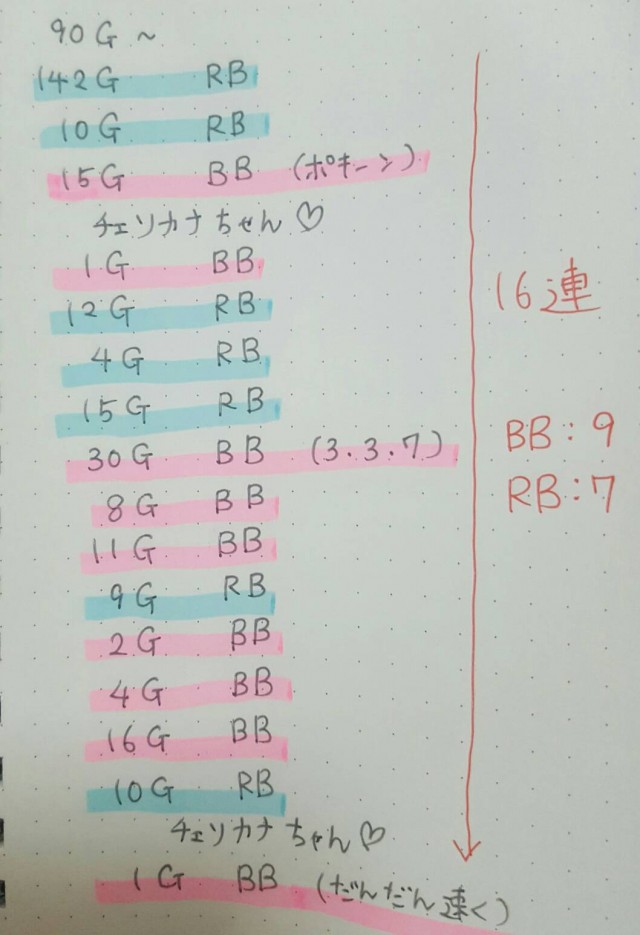 90G~
142G RB
10G RB
15G BB (ポキーン)
チェリカナちゃん♡
1G BB
12G RB
4G RB
15G RB
30G BB (3.3.7)
8G BB
11G BB
9G RB
2G BB
4G BB
16G BB
10G RB
チェリカナちゃん♡
1G BB (だんだん速く)
16連
BB:9
RB:7